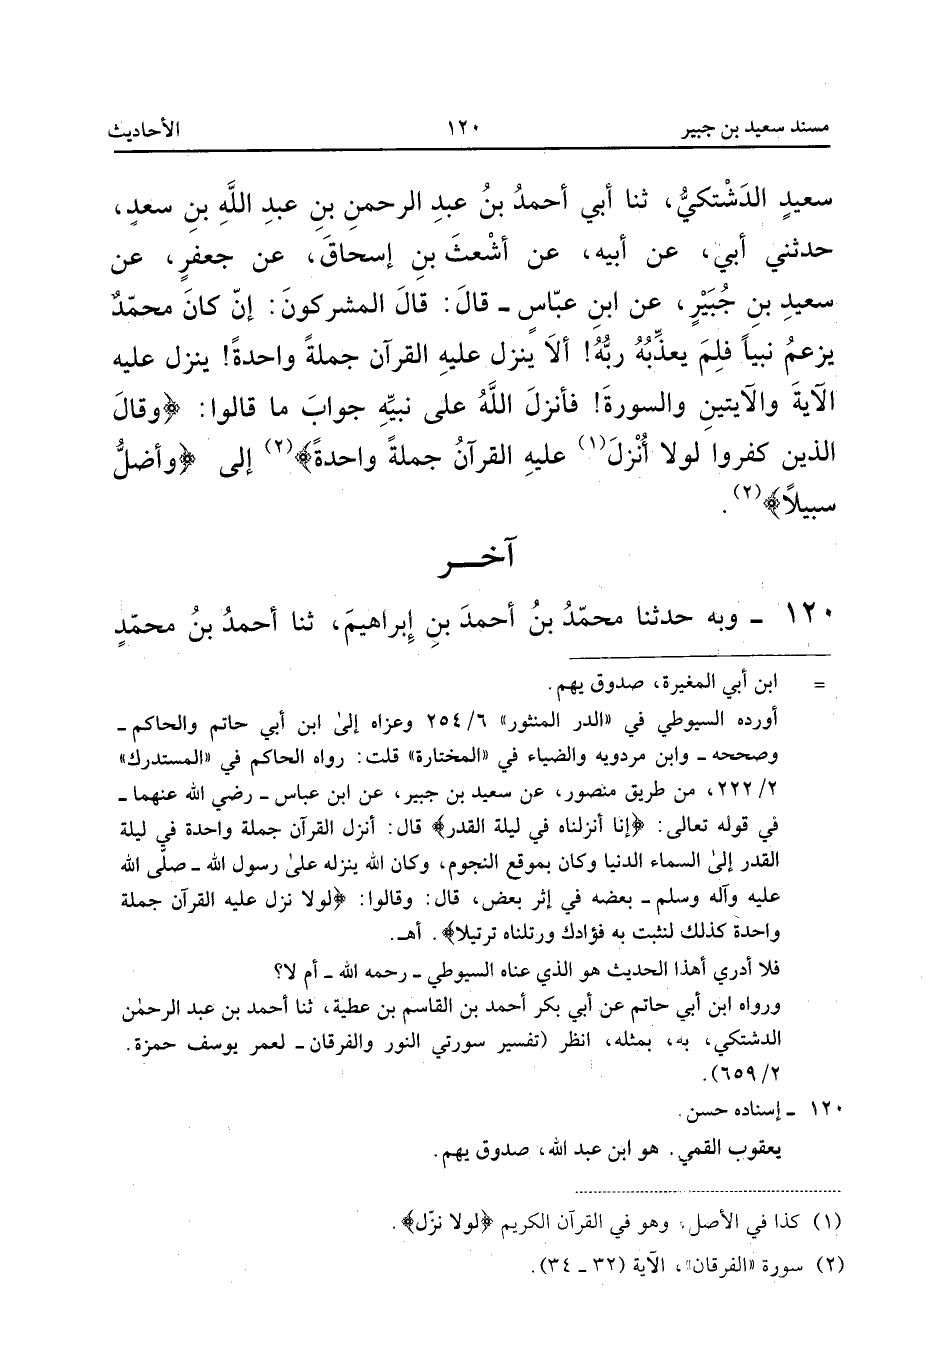 مسند سعيد بن جبير ١٢٠ الأحاديث
سعيدٍ الدَشْتكيُّ، ثنا أبي أحمدُ بنُ عبدِ الرحمنِ بنِ عبدِ اللَّهِ بنِ سعدٍ،
حدثني أبي، عن أبيه، عن أشْعثَ بنِ إسحاقَ، عن جعفرٍ، عن
سعيدِ بنِ جُبَيْرٍ، عن ابنِ عبّاسٍ ـ قالَ: قالَ المشركونَ: إنّ كانَ محمّدٌ
يزعمُ نبياً فلِمَ يعذِّبُهُ ربُّهُ! ألاَ ينزل عليهِ القرآن جملةً واحدةً! ينزل عليه
الآيةَ والآيتينِ والسورةَ! فأنزلَ اللَّهُ على نبيِّهِ جوابَ ما قالوا: ﴿وقالَ
الذين كفروا لولا أُنْزلَ(١) عليهِ القرآنُ جملةً واحدةً﴾(٢) إلى ﴿وأضلُّ
سبيلاً﴾(٢).
آخـــر
١٢٠ ـ وبه حدثنا محمّدُ بنُ أحمدَ بنِ إبراهيمَ، ثنا أحمدُ بنُ محمّدٍ
= ابن أبي المغيرة، صدوق يهم.
أورده السيوطي في «الدر المنثور» ٦/ ٢٥٤ وعزاه إلىٰ ابن أبي حاتم والحاكم ـ
وصححه ـ وابن مردويه والضياء في «المختارة» قلت: رواه الحاكم في «المستدرك»
٢/ ٢٢٢، من طريق منصور، عن سعيد بن جبير، عن ابن عباس ـ رضي الله عنهما ـ
في قوله تعالى: ﴿إنا أنزلناه في ليلة القدر﴾ قال: أنزل القرآن جملة واحدة في ليلة
القدر إلىٰ السماء الدنيا وكان بموقع النجوم، وكان الله ينزله علىٰ رسول الله ـ صلَّى الله
عليه وآله وسلم ـ بعضه في إثر بعض، قال: وقالوا: ﴿لولا نزل عليه القرآن جملة
واحدة كذلك لنثبت به فؤادك ورتلناه ترتيلا﴾. أهـ.
فلا أدري أهذا الحديث هو الذي عناه السيوطي ـ رحمه الله ـ أم لا؟
ورواه ابن أبي حاتم عن أبي بكر أحمد بن القاسم بن عطية، ثنا أحمد بن عبد الرحمٰن
الدشتكي، به، بمثله، انظر (تفسير سورتي النور والفرقان ـ لعمر يوسف حمزة.
٢/ ٦٥٩).
١٢٠ ـ إسناده حسن.
يعقوب القمي. هو ابن عبد الله، صدوق يهم.
(١) كذا في الأصل، وهو في القرآن الكريم ﴿لولا نزّل﴾.
(٢) سورة «الفرقان»، الآية (٣٢ ـ ٣٤).